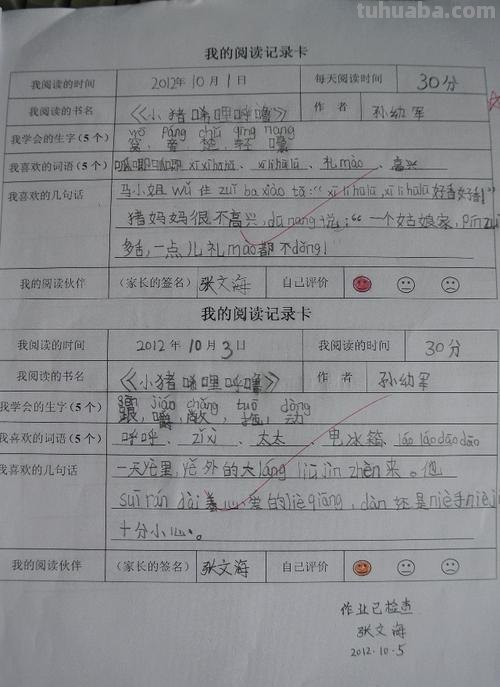 tuhuaba.com
我的阅读记录卡
我阅读的时间 2012年10月1日 每天阅读时间 30分
我阅读的书名 《小猪唏哩呼噜》 作者 孙幼军
wō páng chǔ qīng nang
我学会的生字(5个) 窝、旁、楚、轻、囊
我喜欢的词语(5个) xī xī hā hā、xī lī hū lū、礼mào、高兴
我喜欢的几句话 马小姐wǔ住zuǐ ba xiào tā:“xī lī hū lū,xī lī hū lū好
猪妈妈很不高兴,dū nang说:“一个姑娘家,pín zuǐ
多舌,一点儿礼mào都不dǒng!
我的阅读伙伴 (家长的签名) 张文海 自己评价
我的阅读记录卡
我阅读的时间 2012年10月3日 我阅读的时间 30分
我阅读的书名 《小猪唏哩呼噜》 作者 孙幼军
jiáo chǎng tuō dòng
我学会的生字(5个) 嚼、敞、拖、动
我喜欢的词语(5个) 呼呼、zǐ xì、太太、电冰箱、láo láo dāo dāo
我喜欢的几句话 一天夜里,从外的大láng liū jìn zhèn来。他
suī rán dài着心爱的liè qiāng,dàn还是niè手niè
十分小心。
我的阅读伙伴 (家长的签名) 张文海 自己评价
作业已检查
张文海
2012.10.5